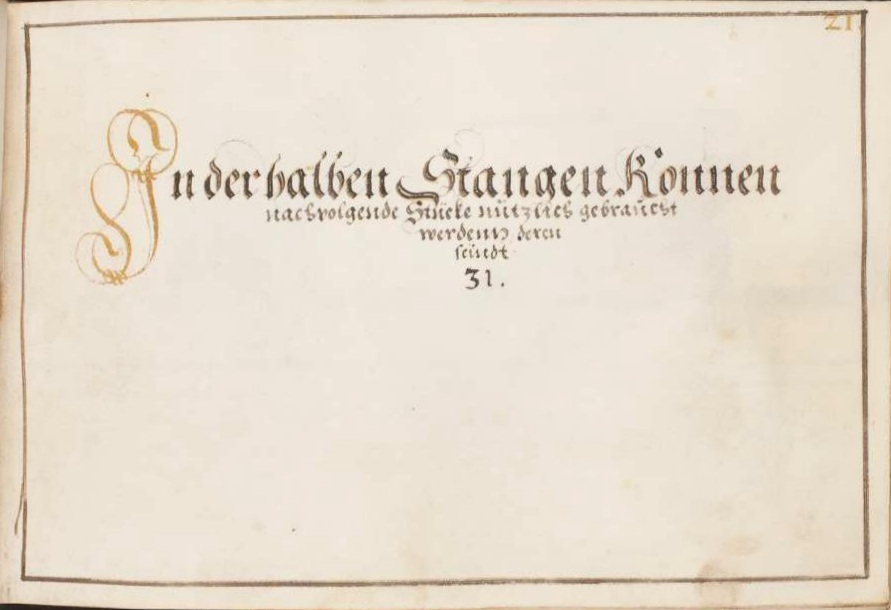 21
In der halben Stangen Können
nachvolgende Stücke nützlich gebraücht
werdenn deren
seindt
31.